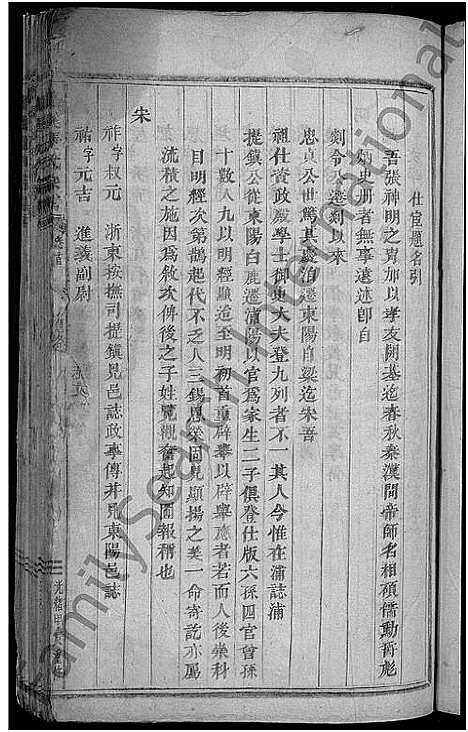 仕宦題名引
吾張神明之胄加以孝友開基迄春秋秦漢間帝師名相碩儒勳胥彪
炳史册者無事遠述即自
剡令公遷剡以來
忠貞公世篤其慶洎遷東陽自梁迄宋吾
祖仕資政殿學士御史大夫登九列者不一其人今惟在浦誌浦
提鎮公從東陽白鹿遷浦陽以官為家生二子俱登仕版六孫四官曾孫
十數人九以明經顯迨至明初首重辟舉以辟舉應者若而人後崇科
目明經次第鵲起代不乏人三錫恩榮固見顯揚之美一命寄託亦屬
流積之施因為敘次俾後之子姓覽觀奮起知圖報稱也
宋
祚字权元 浙東按撫司提鎮見邑誌政事傳并見東陽邑誌
祐字元吉 進義副尉
光緒甲
FamilySearch International